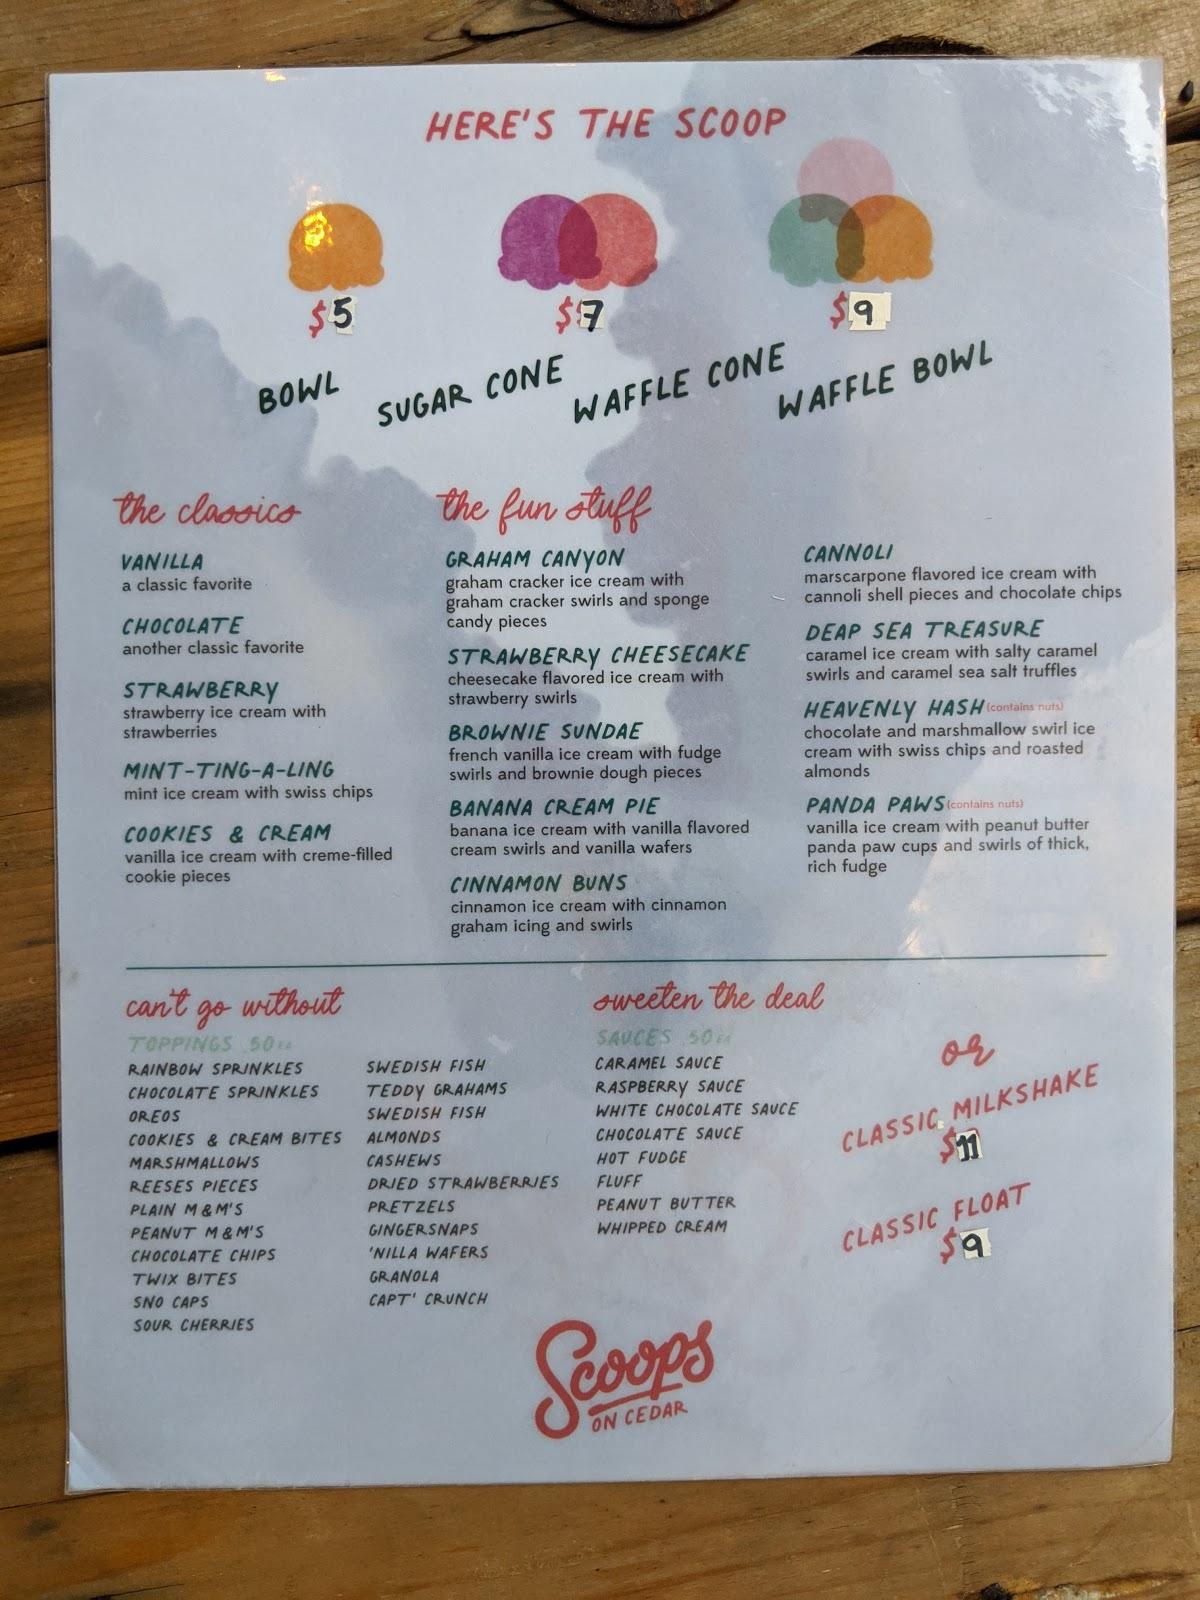 HERE'S THE SCOOP
$5
$7
$9
BOWL
SUGAR CONE
WAFFLE CONE
WAFFLE BOWL
the classics
VANILLA
a classic favorite
CHOCOLATE
another classic favorite
STRAWBERRY
strawberry ice cream with
strawberries
MINT-TING-A-LING
mint ice cream with swiss chips
COOKIES & CREAM
vanilla ice cream with creme-filled
cookie pieces
the fun stuff
GRAHAM CANYON
graham cracker ice cream with
graham cracker swirls and sponge
candy pieces
STRAWBERRY CHEESECAKE
cheesecake flavored ice cream with
strawberry swirls
BROWNIE SUNDAE
french vanilla ice cream with fudge
swirls and brownie dough pieces
BANANA CREAM PIE
banana ice cream with vanilla flavored
cream swirls and vanilla wafers
CINNAMON BUNS
cinnamon ice cream with cinnamon
graham icing and swirls
CANNOLI
marscarpone flavored ice cream with
cannoli shell pieces and chocolate chips
DEAP SEA TREASURE
caramel ice cream with salty caramel
swirls and caramel sea salt truffles
HEAVENLY HASH (contains nuts)
chocolate and marshmallow swirl ice
cream with swiss chips and roasted
almonds
PANDA PAWS (contains nuts)
vanilla ice cream with peanut butter
panda paw cups and swirls of thick,
rich fudge
can't go without
TOPPINGS .50 EA
RAINBOW SPRINKLES
CHOCOLATE SPRINKLES
OREOS
COOKIES & CREAM BITES
MARSHMALLOWS
REESES PIECES
PLAIN M&M'S
PEANUT M&M'S
CHOCOLATE CHIPS
TWIX BITES
SNO CAPS
SOUR CHERRIES
SWEDISH FISH
TEDDY GRAHAMS
SWEDISH FISH
ALMONDS
CASHEWS
DRIED STRAWBERRIES
PRETZELS
GINGERSNAPS
'NILLA WAFERS
GRANOLA
CAPT' CRUNCH
sweeten the deal
SAUCES .50 EA
CARAMEL SAUCE
RASPBERRY SAUCE
WHITE CHOCOLATE SAUCE
CHOCOLATE SAUCE
HOT FUDGE
FLUFF
PEANUT BUTTER
WHIPPED CREAM
or
CLASSIC MILKSHAKE
$11
CLASSIC FLOAT
$9
Scoops
ON CEDAR